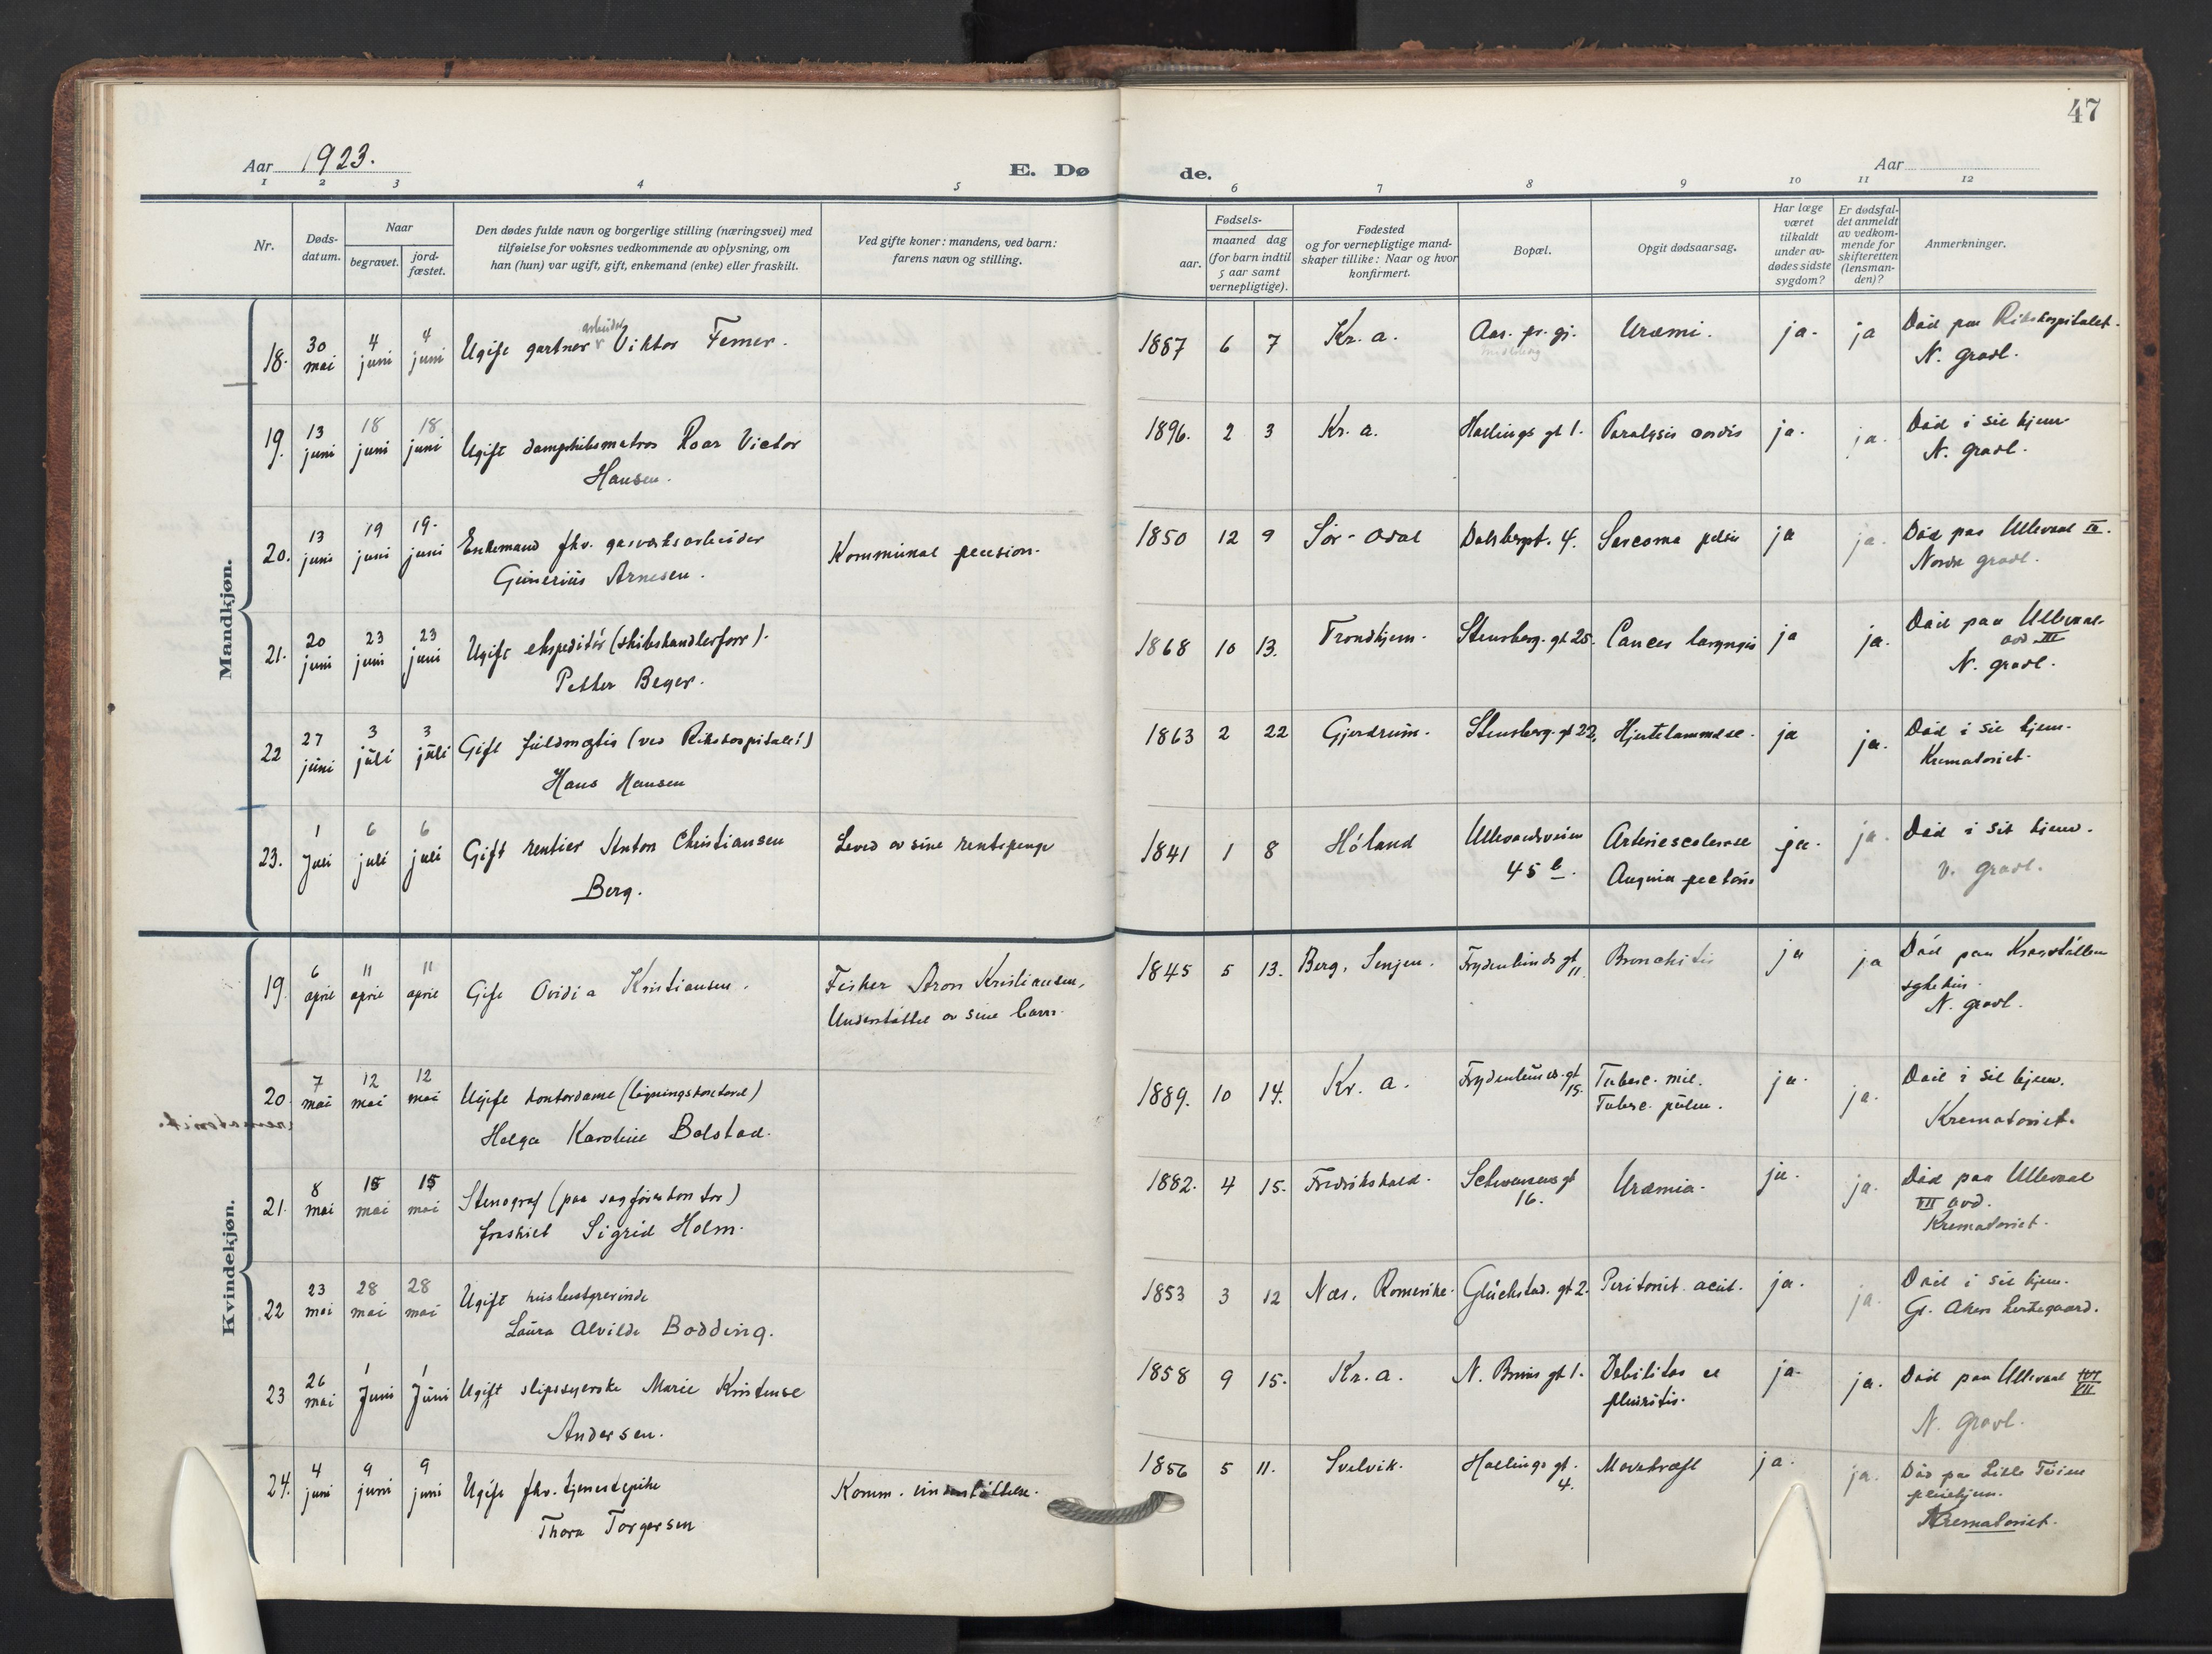 47
Aar 1923.
E. Dø
de.
Aar
1 2 3 4 5 6 7 8 9 10 11 12
Nr.
Døds-
datum.
Naar
begravet.
jord-
fæstet.
Den dødes fulde navn og borgerlige stilling (næringsvei) med
tilføielse for voksnes vedkommende av oplysning, om
han (hun) var ugift, gift, enkemand (enke) eller fraskilt.
Ved gifte koner: mandens, ved barn:
farens navn og stilling.
Fødsels-
aar.
maaned dag
(for barn indtil
5 aar samt
vernepligtige).
Fødested
og for vernepligtige mand-
skaper tillike: Naar og hvor
konfirmert.
Bopæl.
Opgit dødsaarsag.
Har læge
været
tilkaldt
under av-
dødes sidste
sygdom?
Er dødsfal-
det anmeldt
av vedkom-
mende for
skifteretten
(lensman-
den)?
Anmerkninger.
Mandkjøn.
18. 30 mai 4 juni 4 juni Ugift gartner arbeider Viktor Femer. 1887 6 7 Kr. a. Aas. pr. gj. Uræmi. ja. ja Död paa Rikshospitalet.
N. gravl.
19. 13 juni 18 juni 18 juni Ugift dampskibsmatros Roar Victor 1896. 2 3 Kr. a. Hallings gt 1. Paralysis cordis ja. ja. Död i sit hjem.
Hansen. N. gravl.
20. 13 juni 19 juni 19. juni Enkemand fhv. gasverksarbeider Kommunal pension. 1850 12 9 Sör-Odal Dalsbergst. 4. Sarcoma pelvis ja ja. Död paa Ullevaal IX.
Günerius Arnesen. Nordre gravl.
21. 20 juni 23 juni 23 juni Ugift ekspeditör (skibshandlerforr). 1868 10 13. Trondhjem. Stensberg. gt 25. Cancer laryngis ja ja. Död paa Ullevaal
Petter Beger. avd. III
N. gravl.
22 27 juni 3 juli 3 juli Gift fuldmægtig (ved Rikshospitalet) 1863 2 22 Gjerdrum. Stensberg. gt 22. Hjertelammelse. ja ja. Död i sit hjem.
Hans Hansen Krematoriet.
23. 1 Juli 6 juli 6 juli Gift rentier Anton Christiansen Leved av sine rentepenge 1841 1 8 Höland Ullevaalsveien Arteriesclerose ja. ja. Död i sit hjem.
Berg. 45 b. Angina pectoris V. gravl.
Kvindekjøn.
19. 6 april 11 april 11 april Gift Ovidia Kristiansen. Fisker Aron Kristiansen, 1845 5 13. Berg, Senjen. Frydenlunds gt 11. Bronchitis ja ja Död paa Krosstöllen
Understöttet av sine barn. sykehus.
N. gravl.
20. 7 mai 12 mai 12 mai Ugift kontordame (ligningskontoret) 1889. 10 14. Kr. a. Frydenlunds. gt 15. Tuberc. mil. ja. ja. Död i sit hjem.
Helga Karoline Bolstad. Tuberc. pulm. Krematoriet.
21. 8 mai 15 mai 15 mai Stenograf (paa sagförerkontor) 1882. 4 15. Fredrikshald. Schwensens gt Uræmia. ja. ja. Död paa Ullevaal
fraskilt Sigrid Holm. 16. VII avd.
Krematoriet.
22 23 mai 28 mai 28 mai Ugift husbestyrerinde 1853 3 12 Nes, Romerike. Glückstad. gt 2. Peritonit. acut. ja. ja. Död i sit hjem.
Laura Alvilde Bodding. Gl. Akers kirkegaard.
23 26 mai 1 Juni 1 Juni Ugift slipssyerske Marie Kristense 1858 9 15. Kr. a. N. Bruns gt 1. Debilitas et ja. ja. Död paa Ullevaal VII
Andersen. pleuritis. N. Gravl.
24. 4 juni 9 juni 9 juni Ugift fhv. tjenestepike Komm. understöttelse. 1856 5 11. Svelvik. Hallings gt. Mavekræft ja. ja. Död paa Lille Töien
Thora Torgersen 4. pleiehjem.
Krematoriet.